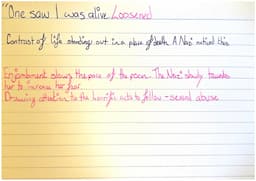 "One saw I was alive. Loosened
Contrast of life standing out in a place of death. A Nazi noticed this.
Enjambment slows the pace of the poem. The Nazi slowly towards
her to increase her fear.
Drawing attention to the horrific acts to follow - sexual abuse